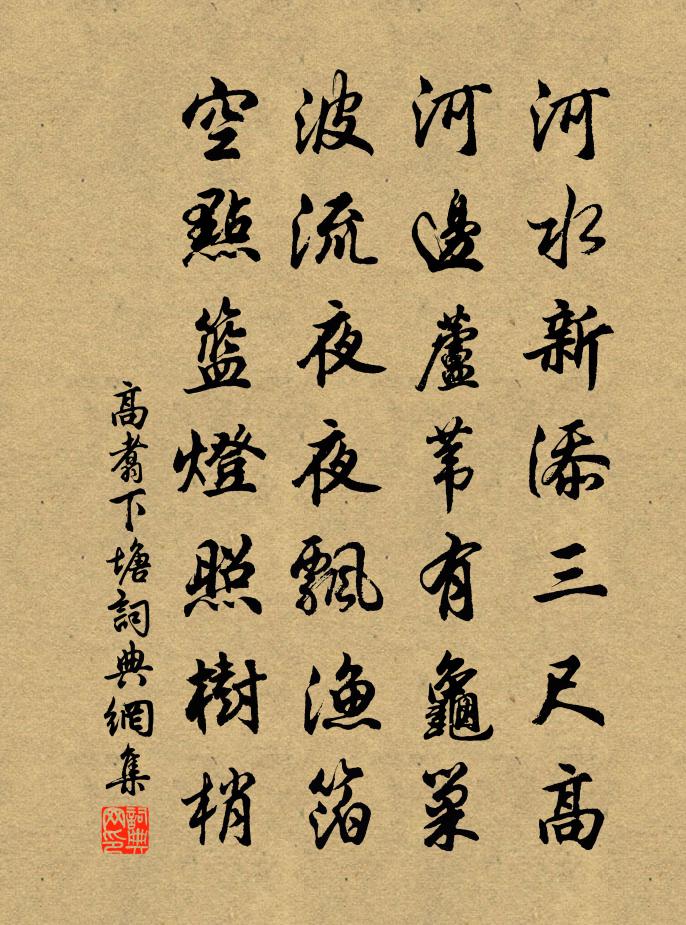 河水新添三尺高
河邊蘆葦有龜巢
波流夜夜飄漁箔
空點籃燈照樹梢
高翥下塘詞典網集
詞典網印